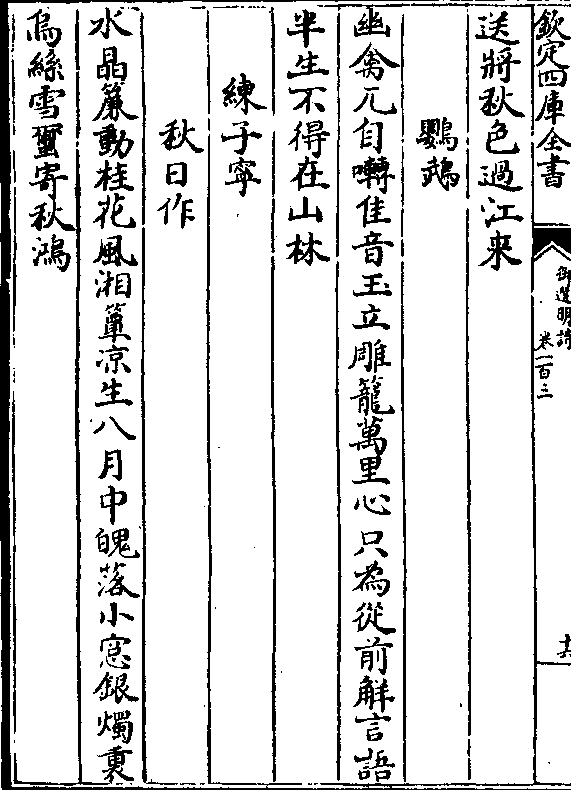 欽定四庫全書
御選明詩
卷一百三
送將秋色過江来
鸚鵡
幽禽兀自囀佳音玉立雕籠萬里心只為從前解言語
半生不得在山林
練子寧
秋日作
水晶簾動桂花風湘簟凉生八月中魄落小窓銀燭裏
烏絲雪璽寄秋鴻